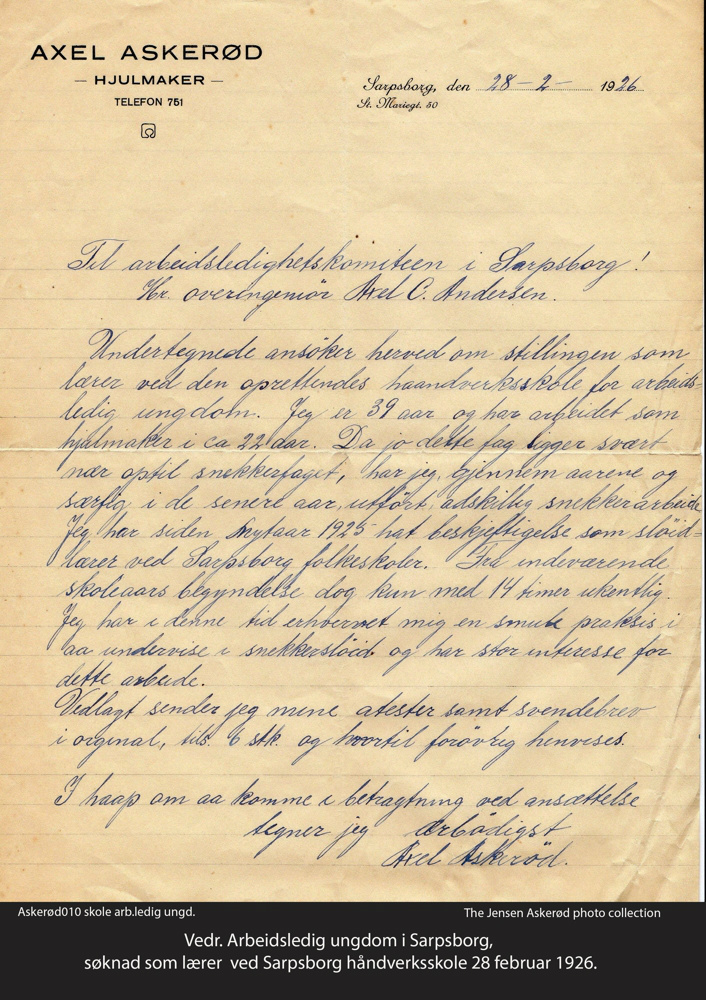 AXEL ASKERØD
— HJULMAKER —
TELEFON 751
Sarpsborg, den 28 - 2 - 1926
St. Mariegt. 50
Til arbeidsledighetskomiteen i Sarpsborg!
Hr. overingeniör Axel C. Andersen.
Undertegnede ansöker herved om stillingen som
lærer ved den oprettendes haandverksskole for arbeids-
ledig ungdom. Jeg er 39 aar og har arbeidet som
hjulmaker i ca 22 aar. Da jo dette fag ligger svært
nær optil snekkerfaget, har jeg, gjennem aarene og
særlig i de senere aar, utfört adskillig snekkerarbeide
Jeg har siden Nytaar 1925 hat beskjeftigelse som slöid-
lærer ved Sarpsborg folkeskoler. Fra indeværende
skoleaars begyndelse dog kun med 14 timer ukentlig.
Jeg har i denne tid erhvervet mig en smule praksis i
aa undervise i snekkerslöid og har stor interesse for
dette arbeide.
Vedlagt sender jeg mine atester samt svendebrev
i orginal, tils. 6 stk. og hvortil forövrig henvises.
I haap om aa komme i betragtning ved ansættelse
tegner jeg ærbödigst
Axel Askeröd.
Askerød010 skole arb.ledig ungd.
The Jensen Askerød photo collection
Vedr. Arbeidsledig ungdom i Sarpsborg,
søknad som lærer ved Sarpsborg håndverksskole 28 februar 1926.